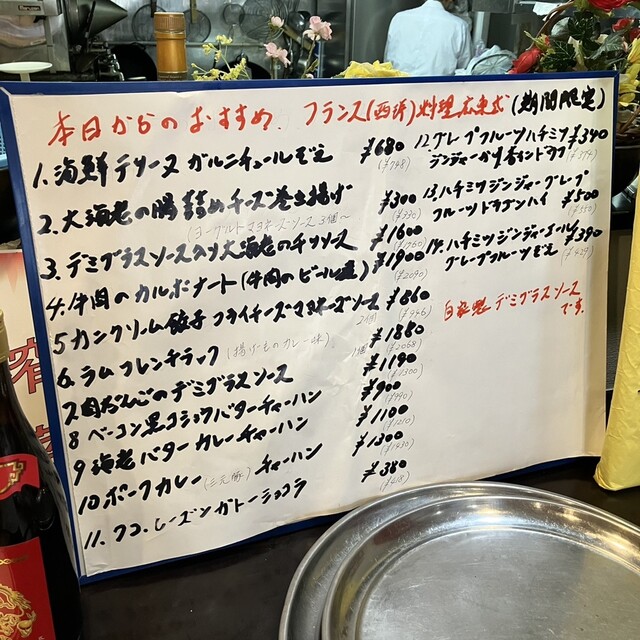 本日からのおすすめ、フランス(西洋)料理広東式(期間限定)
1.海鮮テリーヌ ガルニチュールぞえ ¥680
(¥748)
2.大海老の腸詰めチーズ巻き揚げ ¥300
(ヨーグルトマヨネーズソース 3個〜 (¥330)
3.デミグラスソース入り大海老のチリソース ¥1600
(¥1760)
4.牛肉のカルボナード(牛肉のビール煮) ¥1900
(¥2090)
5カンクリーム餃子フライチーズマヨネーズソース ¥860
2個 (¥946)
6.ラムフレンチラック (揚げものカレー味) 1個 ¥1880
(¥2068)
7肉だんごのデミグラスソース ¥1190
(¥1300)
8ベーコン黒コショウバターチャーハン ¥900
(¥990)
9海老バターカレーチャーハン ¥1100
(¥1210)
10.ポークカレー(三元豚)チャーハン ¥1300
(¥1430)
11.ココ.レーズンガトーショコラ ¥380
(¥418)
12.グレープフルーツハチミツ ¥340
ジンジャー (¥374)
13.ハチミツジンジャーグレープ
フルーツドラゴンハイ ¥500
(¥550)
14.ハチミツジンジャーエール ¥390
グレープフルーツぞえ (¥429)
自家製 デミグラスソース
です。